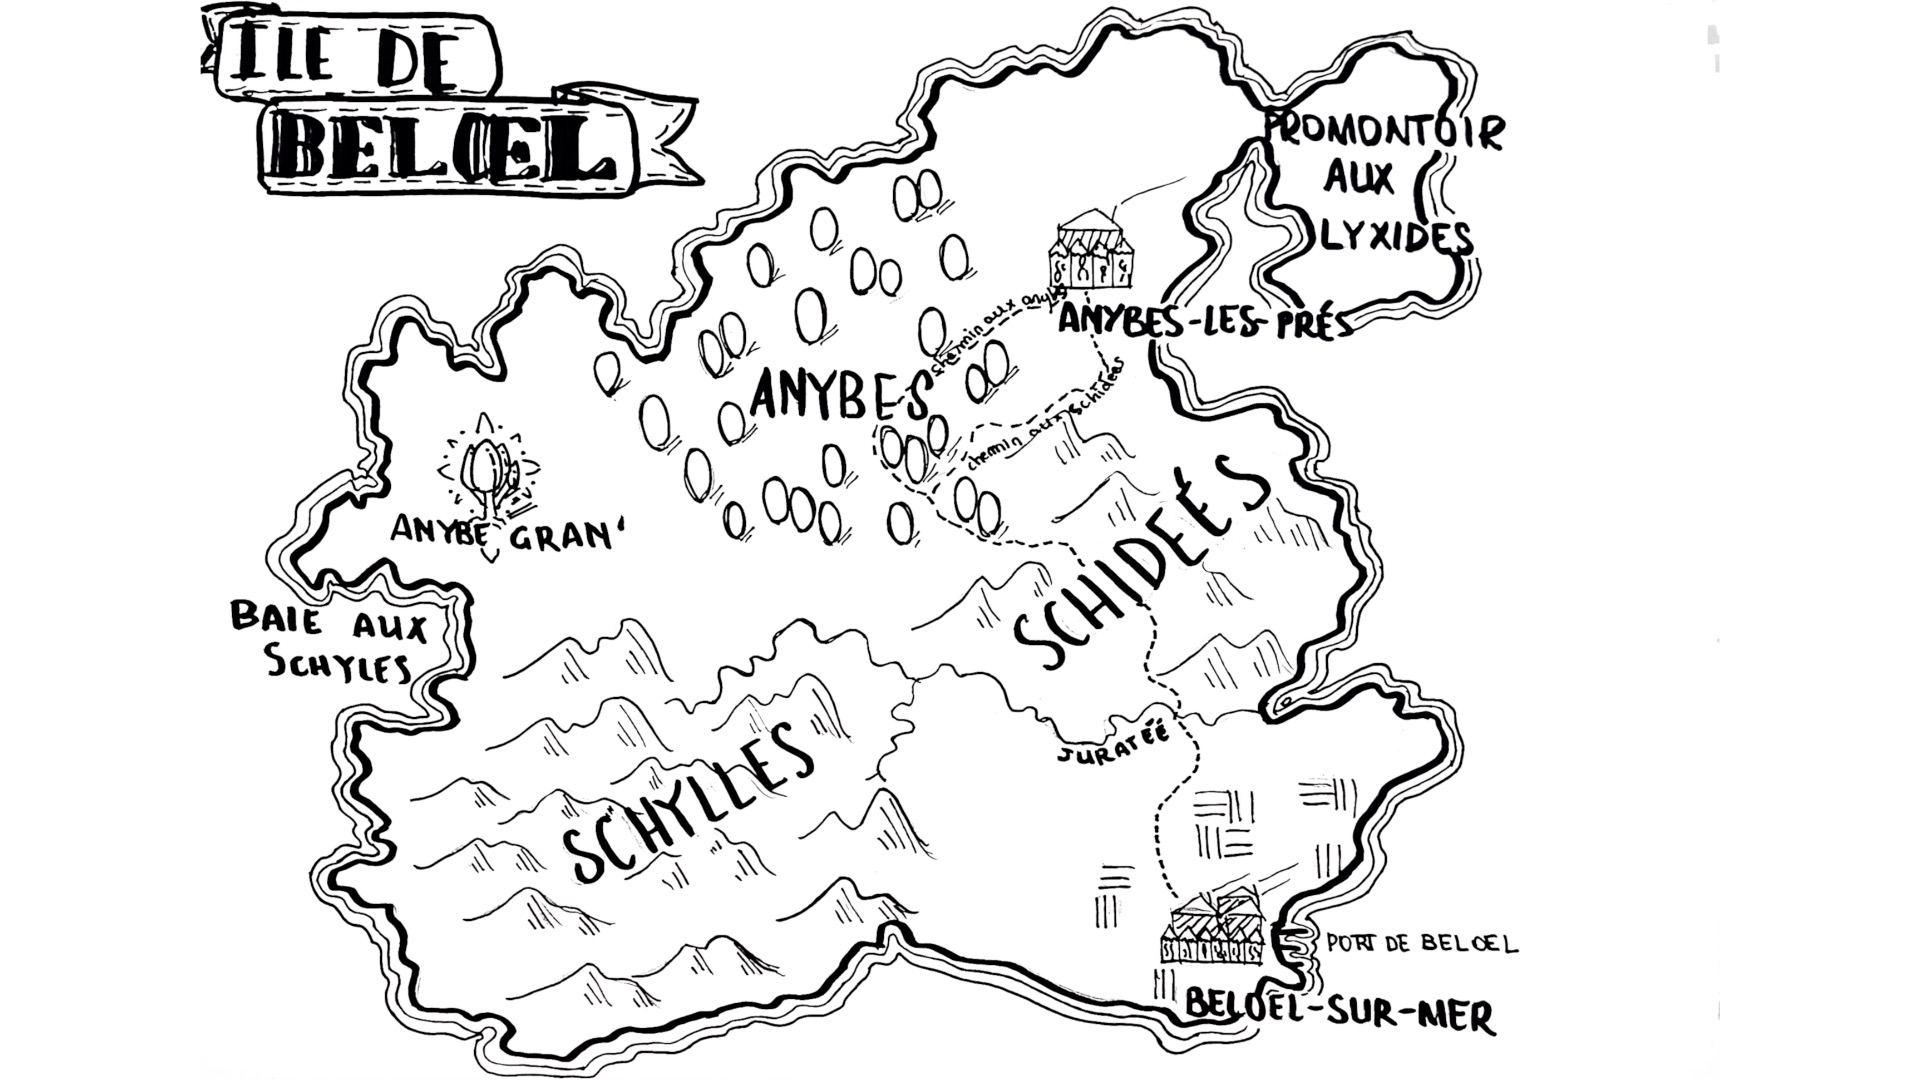 ILE DE
BELŒL
PROMONTOIR
AUX
LYXIDES
ANYBES-LES-PRÉS
chemin aux anybes
ANYBES
chemin aux schidées
ANYBE GRAN'
SCHIDÉÉS
BAIE AUX
SCHYLES
JURATÉÉ
SCHYLLES
PORT DE BELOEL
BELOEL-SUR-MER